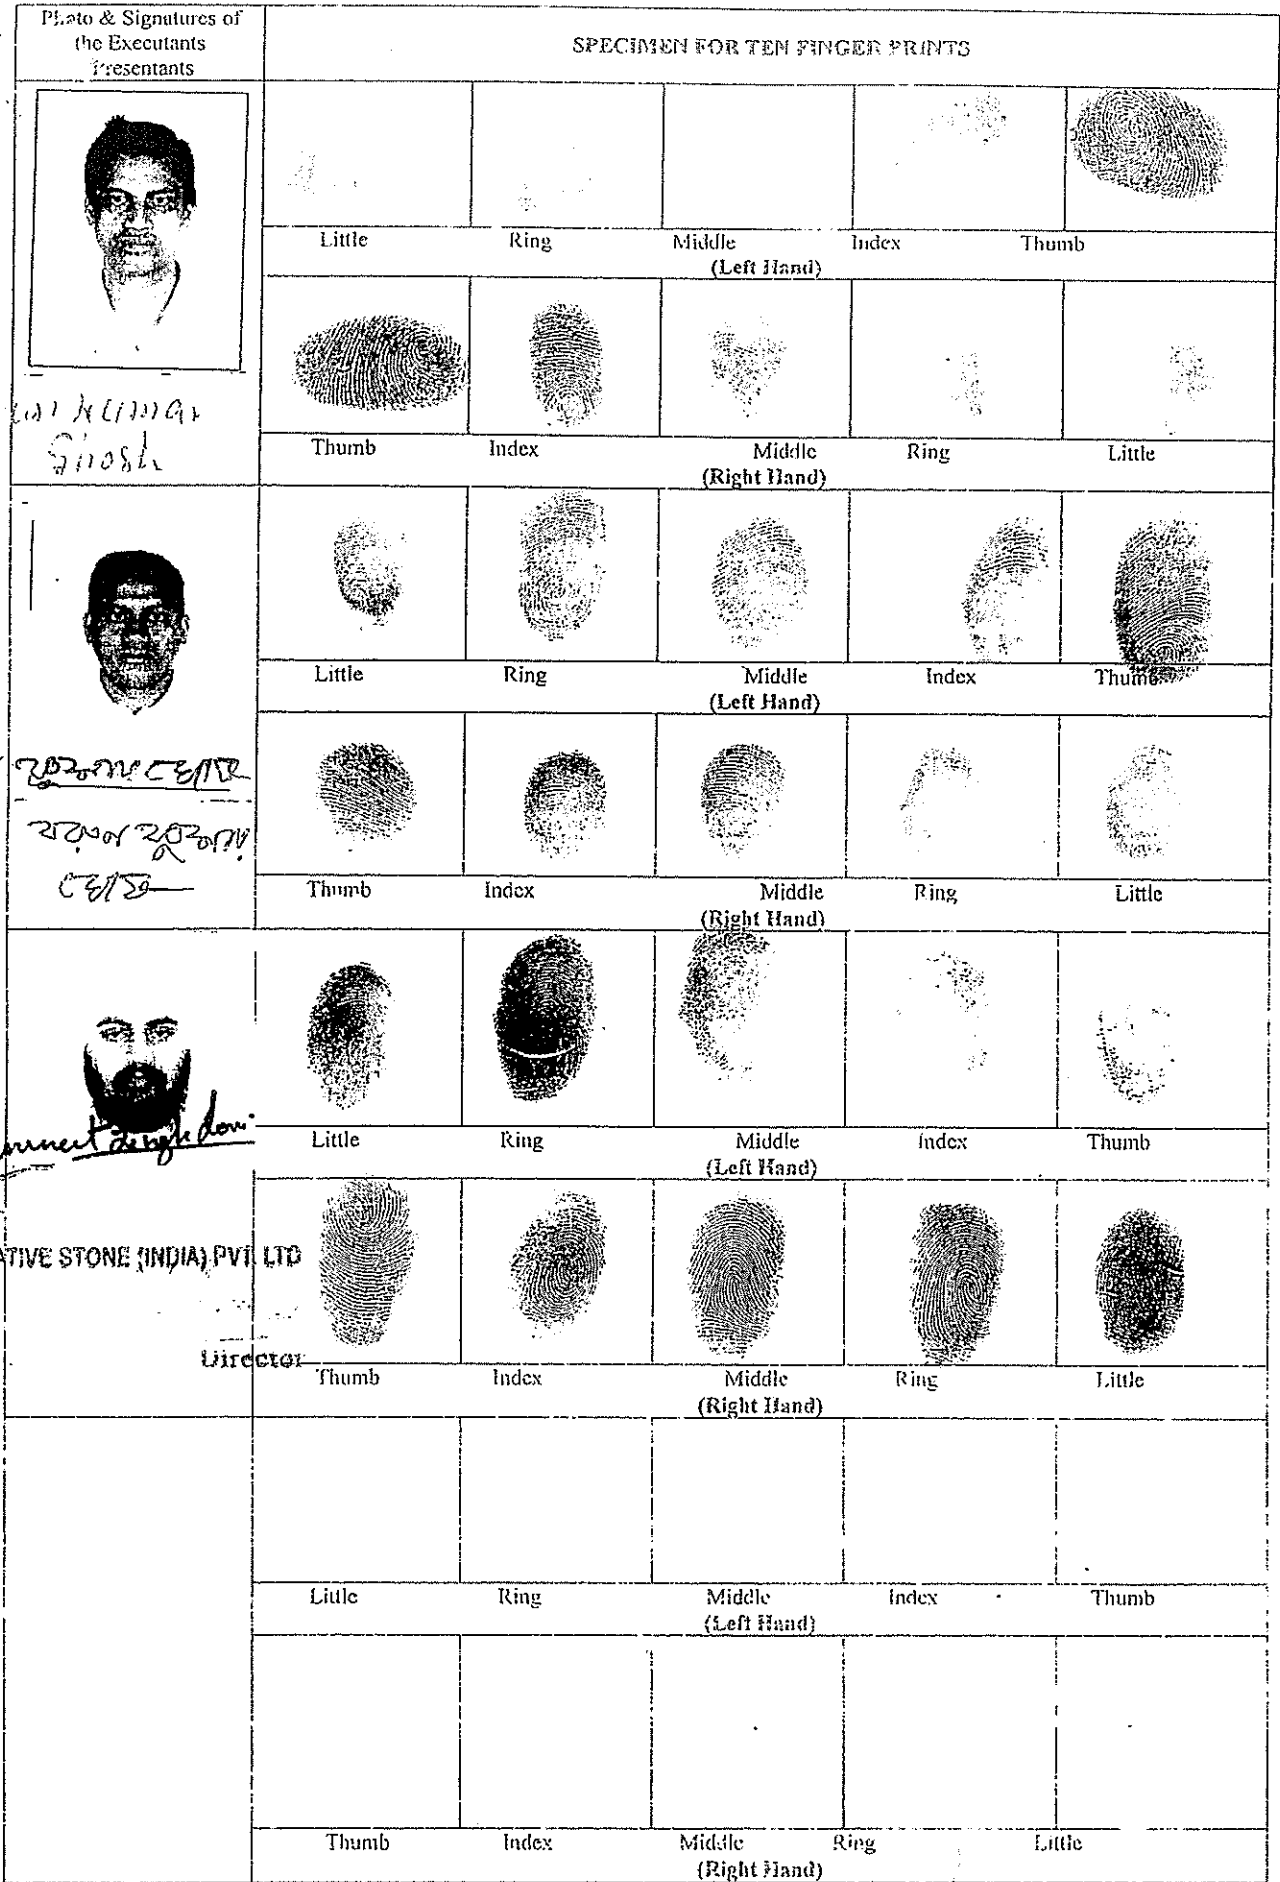 Photo & Signatures of
the Executants
Presentants
SPECIMEN FOR TEN FINGER PRINTS
Little Ring Middle Index Thumb
(Left Hand)
Kumar
Ghosh
Thumb Index Middle Ring Little
(Right Hand)
Little Ring Middle Index Thumb
(Left Hand)
Thumb Index Middle Ring Little
(Right Hand)
Singh
Little Ring Middle Index Thumb
(Left Hand)
ATIVE STONE (INDIA) PVT. LTD
Director
Thumb Index Middle Ring Little
(Right Hand)
Little Ring Middle Index Thumb
(Left Hand)
Thumb Index Middle Ring Little
(Right Hand)